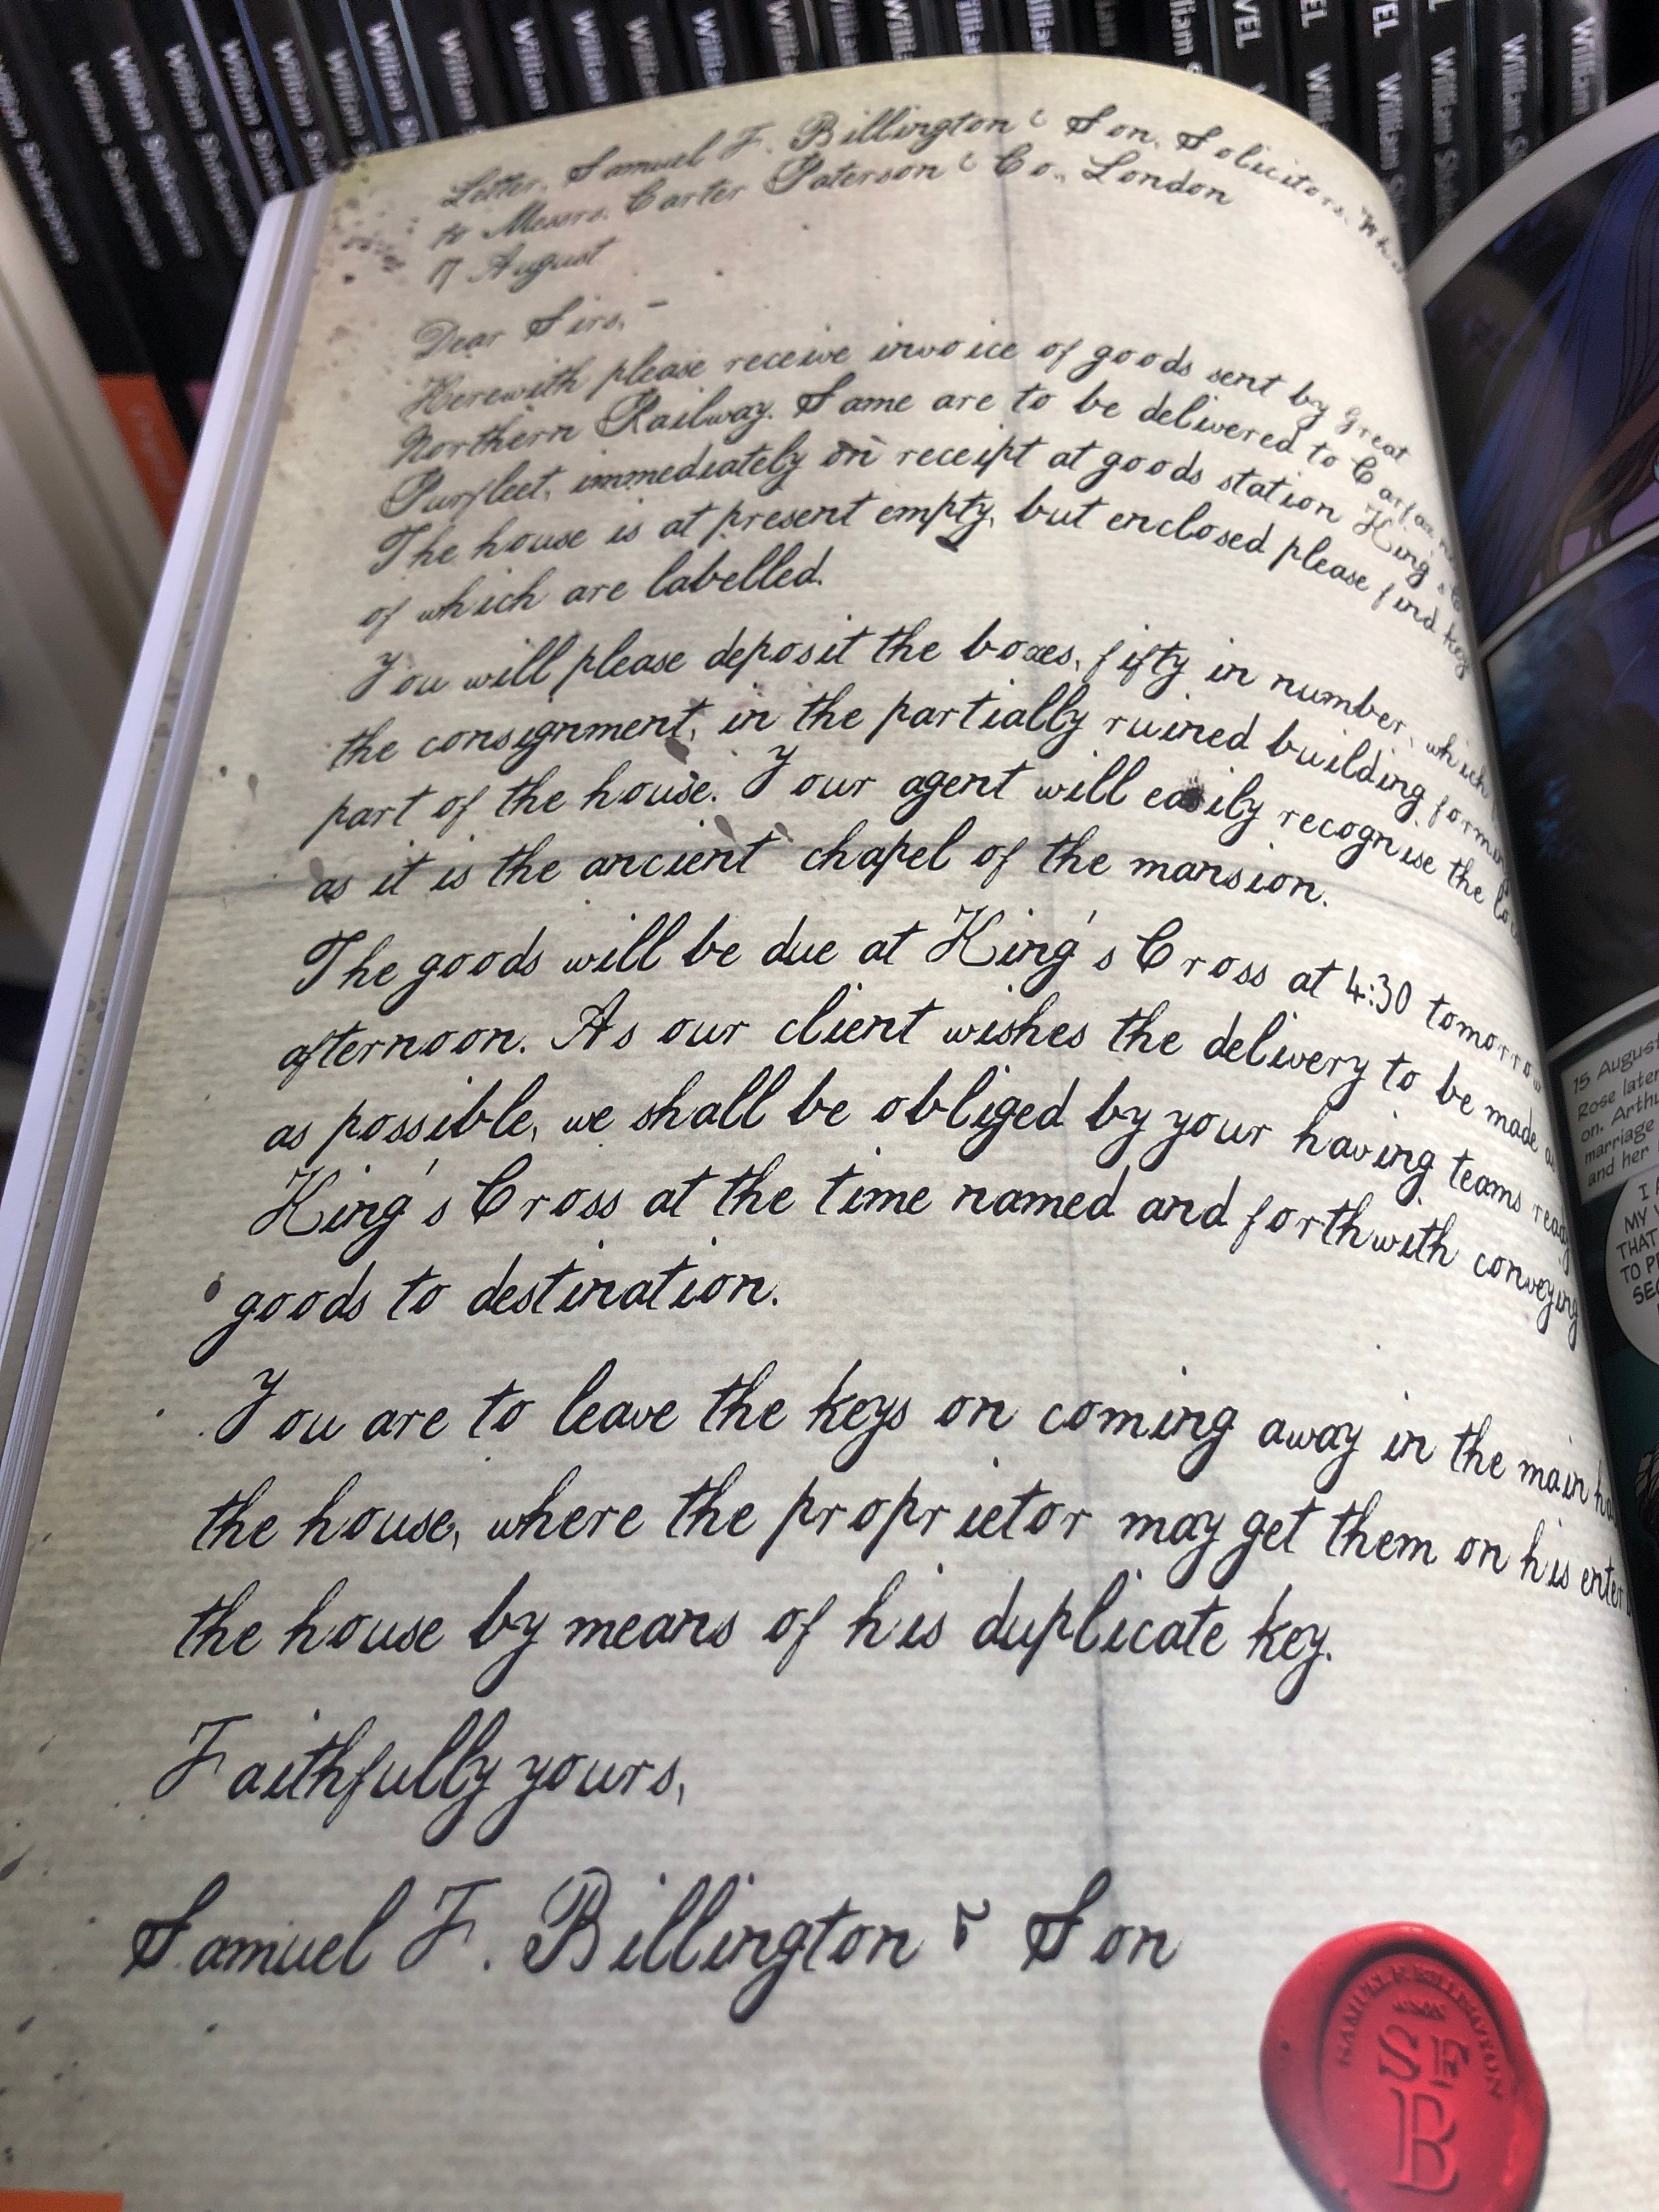 William Shakespeare
William Shakespeare
William Shakespeare
Letter, Samuel F. Billington & Son, Solicitors,
to Messrs. Carter Paterson & Co., London
17 August
Dear Sirs,—
Herewith please receive invoice of goods sent by Great
Northern Railway. Same are to be delivered to Carfax
Purfleet, immediately on receipt at goods station King's
The house is at present empty, but enclosed please find key
of which are labelled.
You will please deposit the boxes, fifty in number, which
the consignment, in the partially ruined building forming
part of the house. Your agent will easily recognise the
as it is the ancient chapel of the mansion.
The goods will be due at King's Cross at 4:30 tomorrow
afternoon. As our client wishes the delivery to be made
as possible, we shall be obliged by your having teams ready
King's Cross at the time named and forthwith conveying
goods to destination.
You are to leave the keys on coming away in the main
the house, where the proprietor may get them on his
the house by means of his duplicate key.
Faithfully yours,
Samuel F. Billington & Son
SAMUEL F. BILLINGTON
SF
B
15 August
Rose later
on. Arthu
marriage
and her
I
MY
THAT